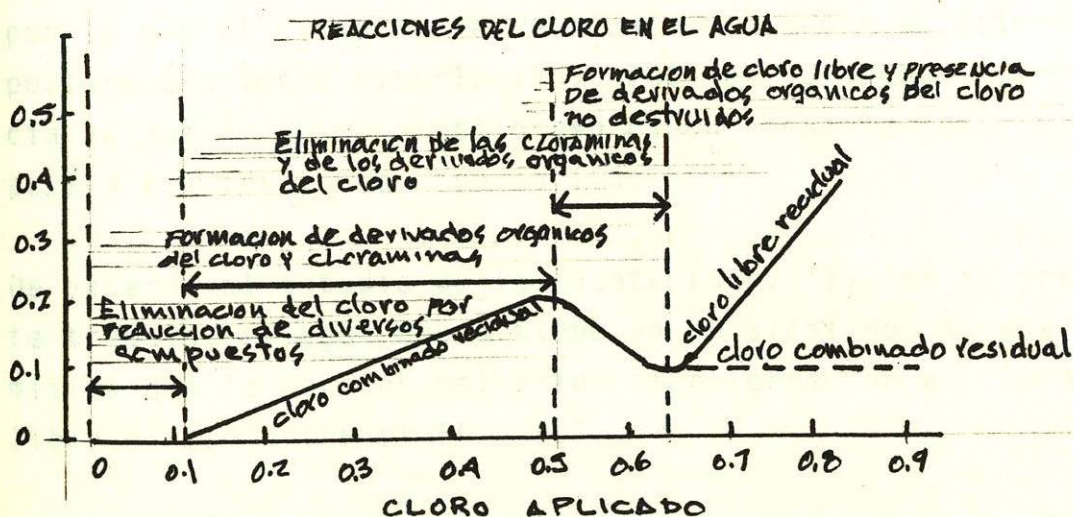 REACCIONES DEL CLORO EN EL AGUA
Formacion de cloro libre y presencia
De derivados organicos del cloro
no destruidos
Eliminacion de las cloraminas
y de los derivados organicos
del cloro
Formacion de derivados organicos
del cloro y cloraminas
Eliminacion del cloro por
reduccion de diversos
compuestos
cloro combinado residual
cloro libre residual
cloro combinado residual
0.5
0.4
0.3
0.2
0.1
0
0 0.1 0.2 0.3 0.4 0.5 0.6 0.7 0.8 0.9
CLORO APLICADO